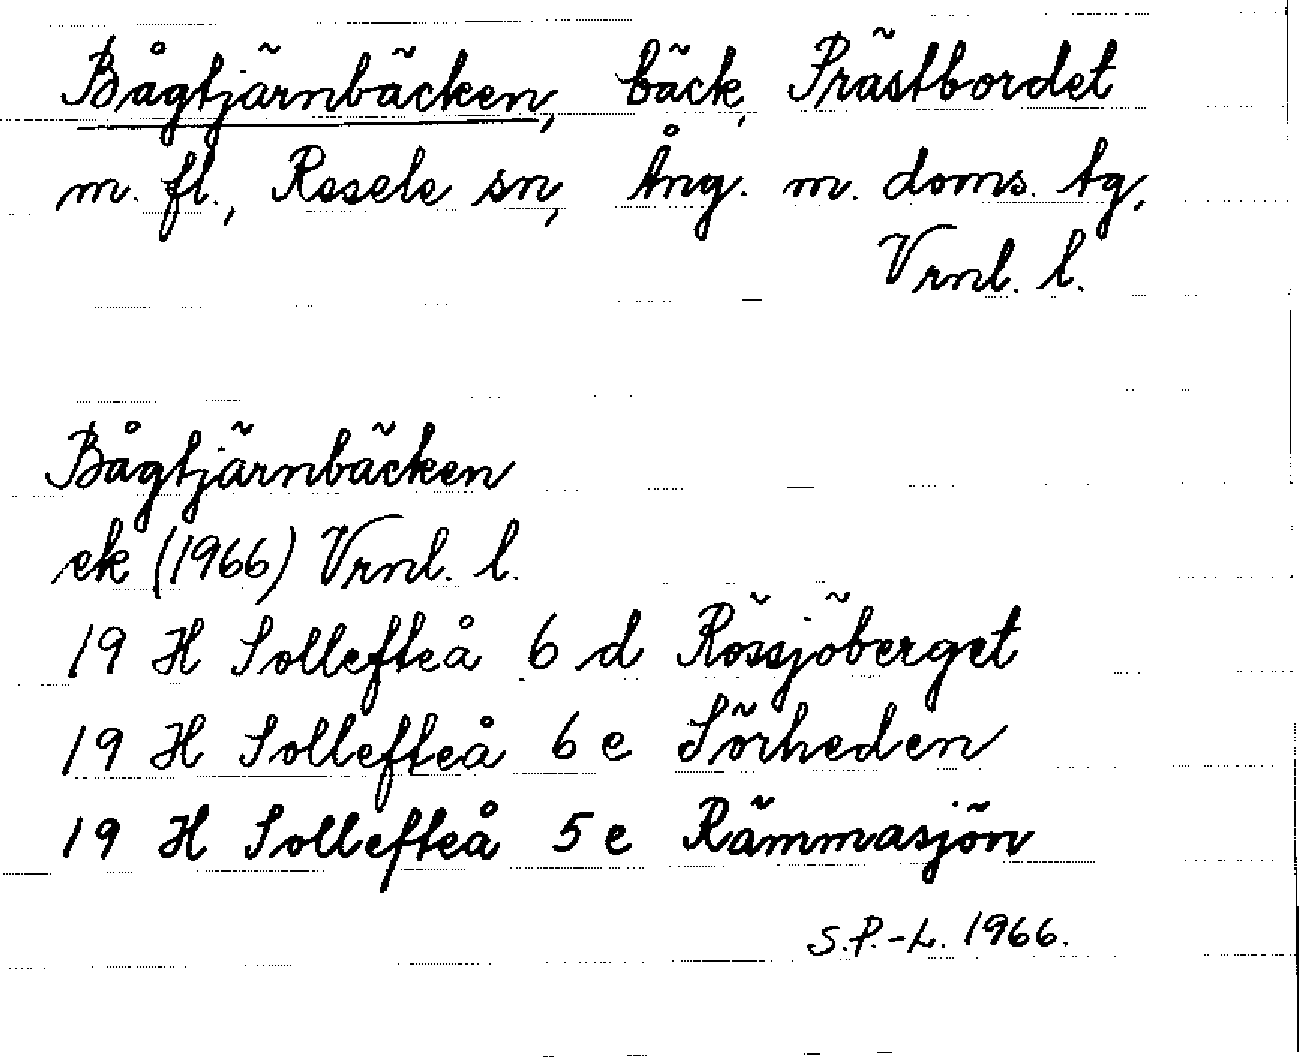 Bågtjärnbäcken, bäck, Prästbordet
m. fl., Resele sn, Ång. m. doms. tg,
Vrnl. l.
Bågtjärnbäcken
ek (1966) Vrnl. l.
19 H Sollefteå 6 d Rössjöberget
19 H Sollefteå 6 e Sörheden
19 H Sollefteå 5 e Rämmasjön
S.P.-L. 1966.